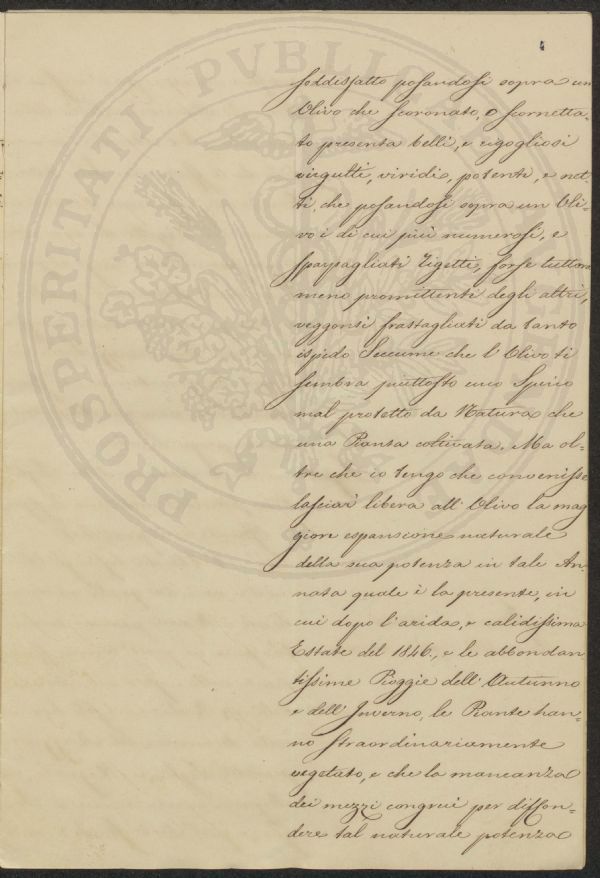 4
PROSPERITATI PVBLICAE
soddisfatto posandosi sopra un
Olivo che scoronato, o scornetta-
to presenta belli, e rigogliosi
virgulti, viridi, potenti, e net-
ti, che posandosi sopra un Oli-
vo i di cui più numerosi, e
sparpagliati Zigetti, forse tuttora
meno promittenti degli altri,
veggonsi frastagliati da tanto
ispido Seccume che l'Olivo ti
sembra piuttosto uno Spino
mal protetto da Natura che
una Pianta coltivata. Ma ol-
tre che io tengo che convenisse
lasciar libera all'Olivo la mag
giore espansione naturale
della sua potenza in tale An-
nata quale è la presente, in
cui dopo l'arida, e calidissima
Estate del 1846., e le abbondan
tissime Pioggie dell'Autunno
e dell'Inverno, le Piante han-
no straordinariamente
vegetato, e che la mancanza
dei mezzi congrui per diffon-
dere tal naturale potenza